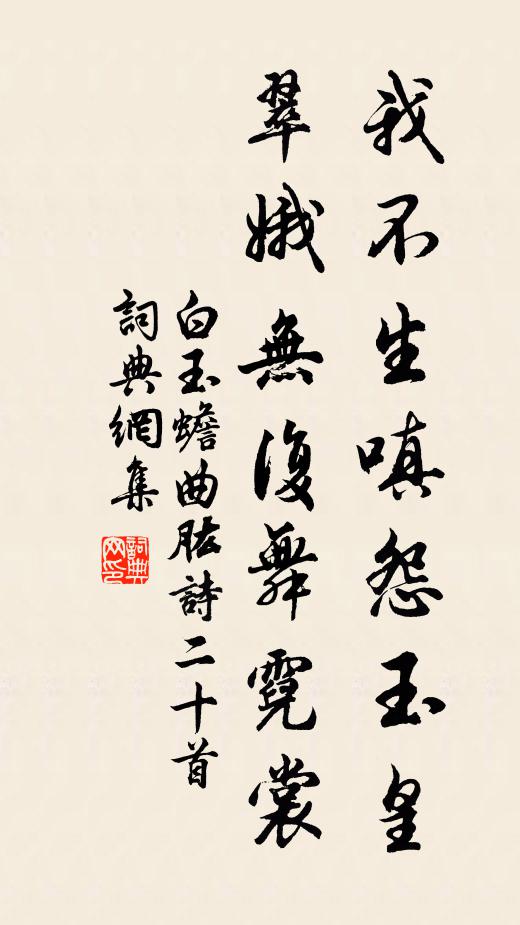 我不生嗔怨玉皇
翠娥無復舞霓裳
白玉蟾曲肱詩二十首
詞典網集
詞典网印